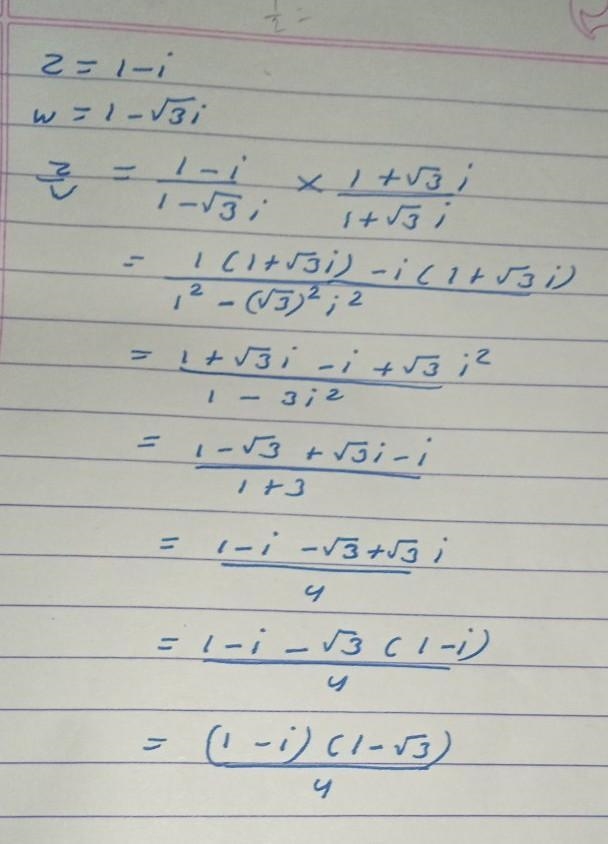 1/2 =
z = 1 - i
w = 1 - √3 i
z/w = (1 - i)/(1 - √3 i) × (1 + √3 i)/(1 + √3 i)
= (1 (1 + √3 i) - i (1 + √3 i))/(1² - (√3)² i²)
= (1 + √3 i - i + √3 i²)/(1 - 3i²)
= (1 - √3 + √3 i - i)/(1 + 3)
= (1 - i - √3 + √3 i)/4
= (1 - i - √3 (1 - i))/4
= ((1 - i) (1 - √3))/4